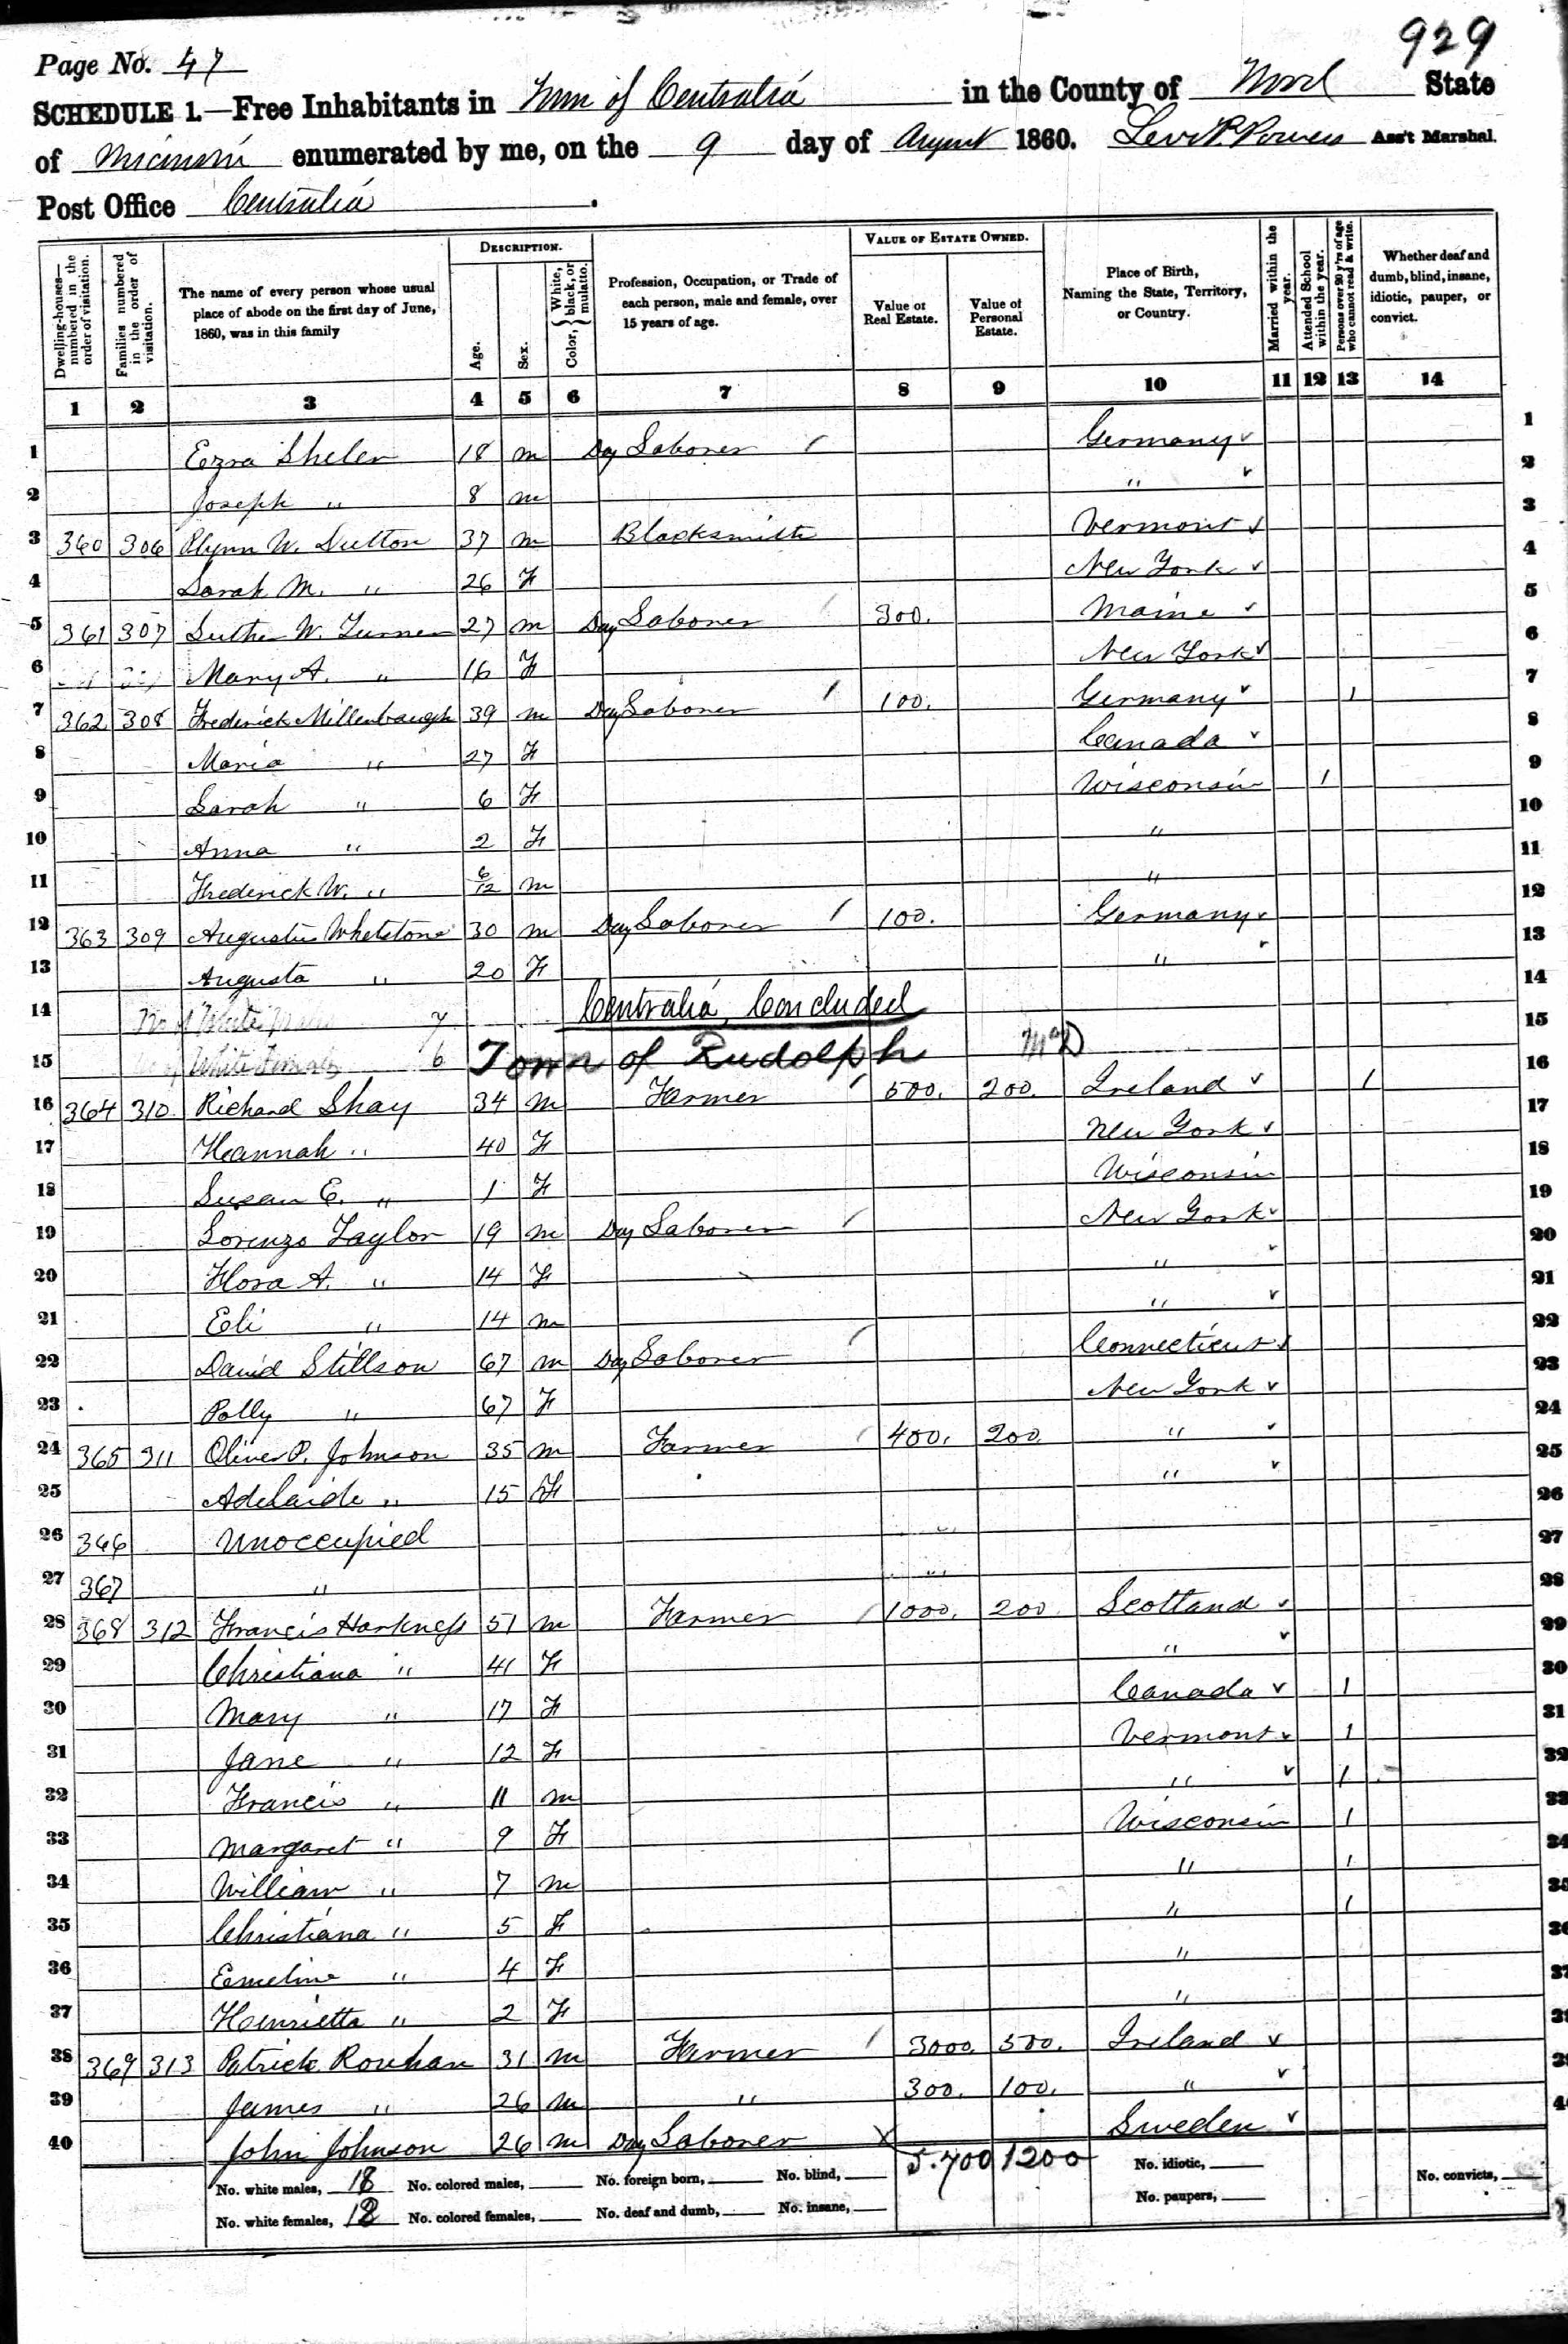 929
Page No. 47
SCHEDULE 1.—Free Inhabitants in Town of Centralia in the County of Wood State
of Wisconsin enumerated by me, on the 9 day of August 1860. Levi P. Powers Ass't Marshal.
Post Office Centralia.
Dwelling-houses—numbered in the order of visitation.
Families numbered in the order of visitation.
The name of every person whose usual place of abode on the first day of June, 1860, was in this family
DESCRIPTION.
Age.
Sex.
Color, { White, black, or mulatto.
Profession, Occupation, or Trade of each person, male and female, over 15 years of age.
VALUE OF ESTATE OWNED.
Value of Real Estate.
Value of Personal Estate.
Place of Birth, Naming the State, Territory, or Country.
Married within the year.
Attended School within the year.
Persons over 20 y'rs of age who cannot read & write.
Whether deaf and dumb, blind, insane, idiotic, pauper, or convict.
1 2 3 4 5 6 7 8 9 10 11 12 13 14
1 Ezra Sheler 18 m Day Laborer / Germany ✓ 1
2 Joseph " 8 m " ✓ 2
3 360 306 Plynn W. Dutton 37 m Blacksmith Vermont ✓ 3
4 Sarah M. " 26 F New York ✓ 4
5 361 307 Luther W. Turner 27 m Day Laborer / 300. Maine ✓ 5
6 Mary A. " 16 F New York ✓ 6
7 362 308 Frederick Millenbaugh 39 m Day Laborer / 100. Germany ✓ 1 7
8 Maria " 27 F Canada ✓ 8
9 Sarah " 6 F Wisconsin 1 9
10 Anna " 2 F " 10
11 Frederick W. " 6/12 m " 11
12 363 309 Augustus Whetstone 30 m Day Laborer / 100. Germany ✓ 12
13 Augusta " 20 F " ✓ 13
14 No of White males 7 Centralia, Concluded 14
15 No of White Females 6 Town of Rudolph 15
16 364 310 Richard Shay 34 m Farmer / 500. 200. Ireland ✓ 1 16
17 Hannah " 40 F New York ✓ 17
18 Susan E. " 1 F Wisconsin 18
19 Lorenzo Taylor 19 m Day Laborer / New York ✓ 19
20 Flora A. " 14 F " ✓ 20
21 Eli " 14 m " ✓ 21
22 David Stillson 67 m Day Laborer / Connecticut ✓ 22
23 Polly " 67 F New York ✓ 23
24 365 311 Oliver P. Johnson 35 m Farmer / 400. 200. " ✓ 24
25 Adelaide " 15 F " ✓ 25
26 366 Unoccupied " 26
27 367 " " 27
28 368 312 Francis Harkness 51 m Farmer / 1000. 200 Scotland ✓ 28
29 Christiana " 41 F " ✓ 29
30 Mary " 17 F Canada ✓ 1 30
31 Jane " 12 F Vermont ✓ 1 31
32 Francis " 11 m " ✓ 1 32
33 Margaret " 9 F Wisconsin 1 33
34 William " 7 m " 1 34
35 Christiana " 5 F " 1 35
36 Emeline " 4 F " 36
37 Henrietta " 2 F " 37
38 369 313 Patrick Rouhan 31 m Farmer / 3000. 500. Ireland ✓ 38
39 James " 26 m " 300. 100. " ✓ 39
40 John Johnson 26 m Day Laborer X Sweden ✓ 40
No. white males, 18 No. colored males, No. foreign born, No. blind, 5.700 1200 No. idiotic, No. convicts,
No. white females, 18 No. colored females, No. deaf and dumb, No. insane, No. paupers,